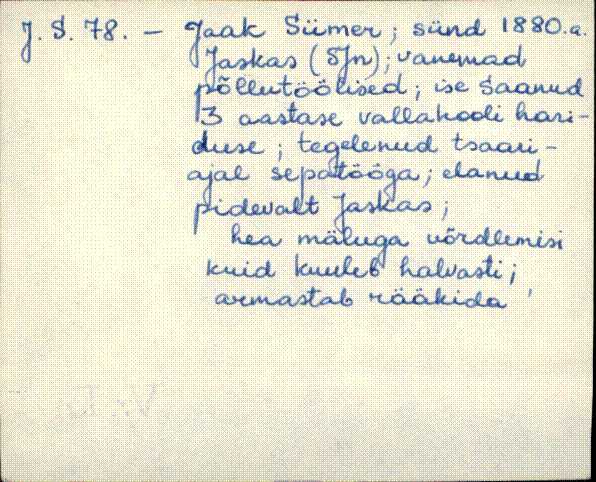 J. S. 78. — Jaak Sümer; sünd 1880.a.
Jaskas (SJn); vanemad
põllutöölised; ise saanud
3 aastase vallakooli hari-
duse; tegelenud tsaari-
ajal sepatööga; elanud
pidevalt Jaskas;
hea mäluga võrdlemisi
kuid kuuleb halvasti;
armastab rääkida